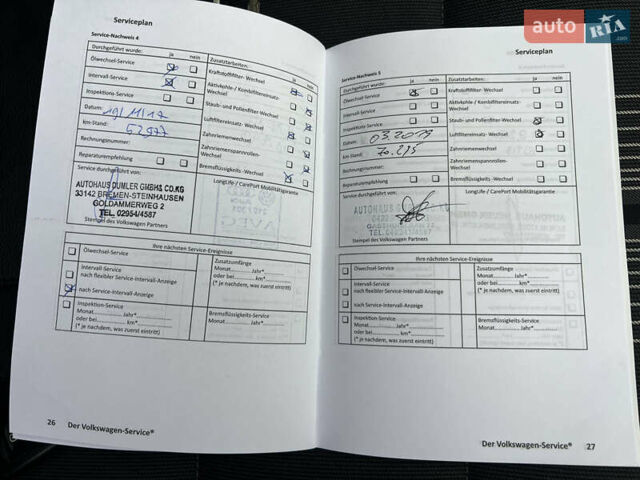 Serviceplan
Service-Nachweis 4
Durchgeführt wurde: ja nein
Ölwechsel-Service
Intervall-Service
Inspektions-Service
Datum: 19/11/17
km-Stand: 52977
Rechnungsnummer:
Reparaturempfehlung
Service durchgeführt von:
AUTOHAUS DUMLER GMBH& CO.KG
33142 BREMEN-STEINHAUSEN
GOLDAMMERWEG 2
TEL. 02954/4587
Stempel des Volkswagen Partners
Zusatzarbeiten: ja nein
Kraftstofffilter- Wechsel
Aktivkohle / Kombifiltereinsatz-
Wechsel
Staub- und Pollenfilter-Wechsel
Luftfiltereinsatz- Wechsel
Zahnriemenwechsel
Zahnriemenspannrollen-
Wechsel
Bremsflüssigkeits -Wechsel
LongLife / CarePort Mobilitätsgarantie
Ihre nächsten Service-Ereignisse
Ölwechsel-Service
Intervall-Service
nach flexibler Service-Intervall-Anzeige
nach Service-Intervall-Anzeige
Inspektion-Service
Monat Jahr*
oder bei km*
(* je nachdem, was zuerst eintritt)
Zusatzumfänge
Monat Jahr*
oder bei km*
(* je nachdem, was zuerst eintritt)
Bremsflüssigkeits-Service
Monat Jahr*
26 Der Volkswagen-Service®
auto RIA .com
Serviceplan
Service-Nachweis 5
Durchgeführt wurde: ja nein
Ölwechsel-Service
Intervall-Service
Inspektions-Service
Datum: 03.2019
km-Stand: 70.215
Rechnungsnummer:
Reparaturempfehlung
Service durchgeführt von:
AUTOHAUS
Stempel des Volkswagen Partners
Zusatzarbeiten: ja nein
Kraftstofffilter- Wechsel
Aktivkohle / Kombifiltereinsatz-
Wechsel
Staub- und Pollenfilter-Wechsel
Luftfiltereinsatz- Wechsel
Zahnriemenwechsel
Zahnriemenspannrollen-
Wechsel
Bremsflüssigkeits-Wechsel
LongLife / CarePort Mobilitätsgarantie
Ihre nächsten Service-Ereignisse
Ölwechsel-Service
Intervall-Service
nach flexibler Service-Intervall-Anzeige
nach Service-Intervall-Anzeige
Inspektion-Service
Monat Jahr*
oder bei km*
(* je nachdem, was zuerst eintritt)
Zusatzumfänge
Monat Jahr*
oder bei km*
(* je nachdem, was zuerst eintritt)
Bremsflüssigkeits-Service
Monat Jahr*
Der Volkswagen-Service® 27